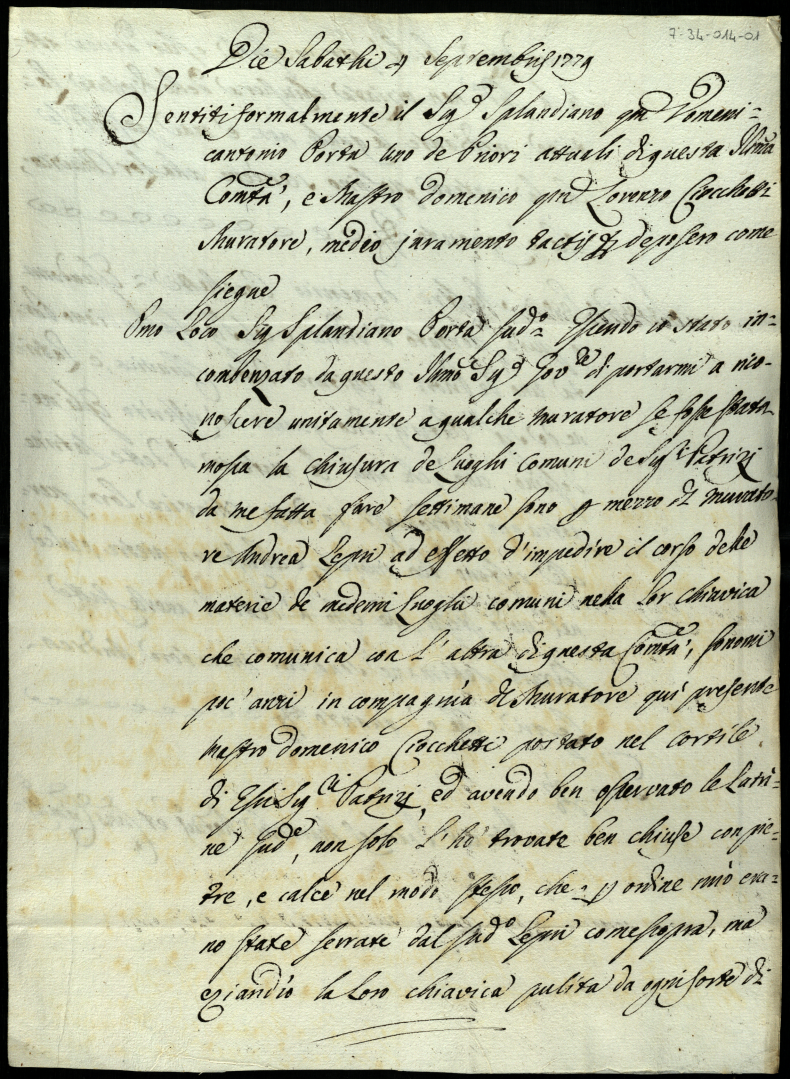 7-34-014-01
Die Sabathi 4 Septembris 1779
Sentiti formalmente il Sig.r Splandiano qm Domeni=
cantonio Porta uno de Priori attuali di questa Illma
Comtà, e Mastro Domenico qm Lorenzo Ciocchetti
Muratore, medio juramento tactis deposero come
siegue
Pmo Loco Sig Splandiano Porta sud.o Essendo io stato in=
combenzato da questo Illmo Sig.r Gov.re di portarmi a rico=
noscere unitamente a qualche muratore se fosse stata
mossa la chiusura de Luoghi comuni de Sig.ri Patrizj
da me fatta fare settimane sono p mezzo di Murato
re Andrea Lepri ad effetto d'impedire il corso delle
materie de medemi Luoghi comuni nella Lor chiavica
che comunica con l'altra di questa Comtà, sonomi
poc'anzi in compagnia di Muratore quì presente
Mastro Domenico Ciocchetti portato nel cortile
di essi Sig.ri Patrizj, ed avendo ben osservato le Latri=
ne sud.e, non solo l'hò trovate ben chiuse con pie=
tre, e calce nel modo stesso, che p ordine mio era=
no state serrate dal sud.o Lepri come sopra, ma
eziandio la Loro chiavica pulita da ogni sorte di